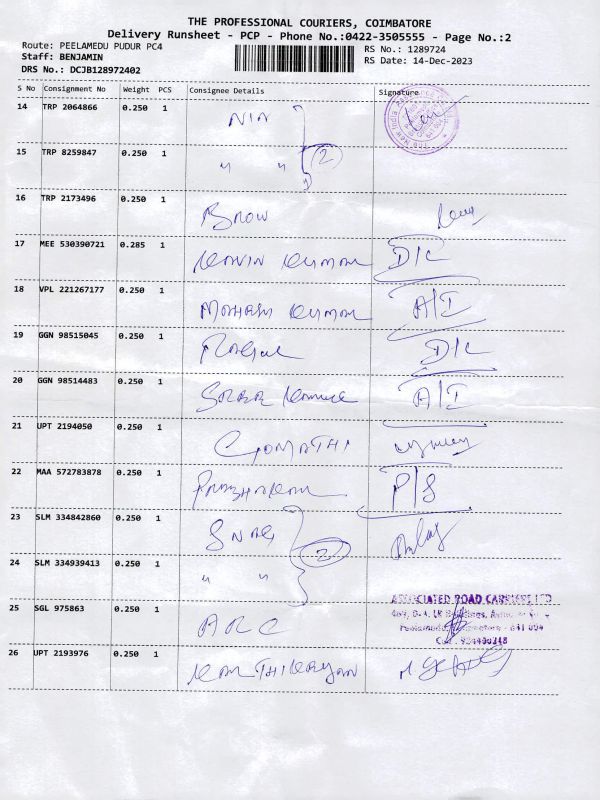 THE PROFESSIONAL COURIERS, COIMBATORE
Delivery Runsheet - PCP - Phone No.:0422-3505555 - Page No.:2
Route: PEELAMEDU PUDUR PC4 RS No.: 1289724
Staff: BENJAMIN RS Date: 14-Dec-2023
DRS No.: DCJB128972402
S No Consignment No Weight PCS Consignee Details Signature
14 TRP 2064866 0.250 1 NIA
15 TRP 8259847 0.250 1 " " 2
16 TRP 2173496 0.250 1 Brow
17 MEE 530390721 0.285 1 Kumar D/C
18 VPL 221267177 0.250 1 Kumar A/I
19 GGN 98515045 0.250 1 D/C
20 GGN 98514483 0.250 1 A/I
21 UPT 2194050 0.250 1 GOMATHI
22 MAA 572783878 0.250 1 P/S
23 SLM 334842860 0.250 1
24 SLM 334939413 0.250 1 " " 2
25 SGL 975863 0.250 1 ARC
ASSOCIATED ROAD CARRIERS LTD
26 UPT 2193976 0.250 1